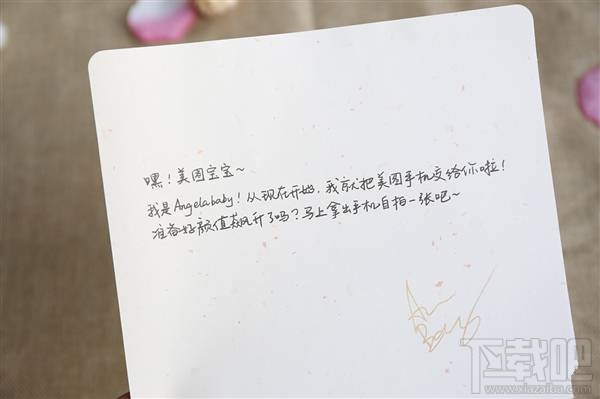 嘿！美图宝宝~
我是Angelababy！从现在开始，我就把美图手机交给你啦！
准备好颜值飙升了吗？马上拿出手机自拍一张吧~
下载吧
www.xiazaiba.com